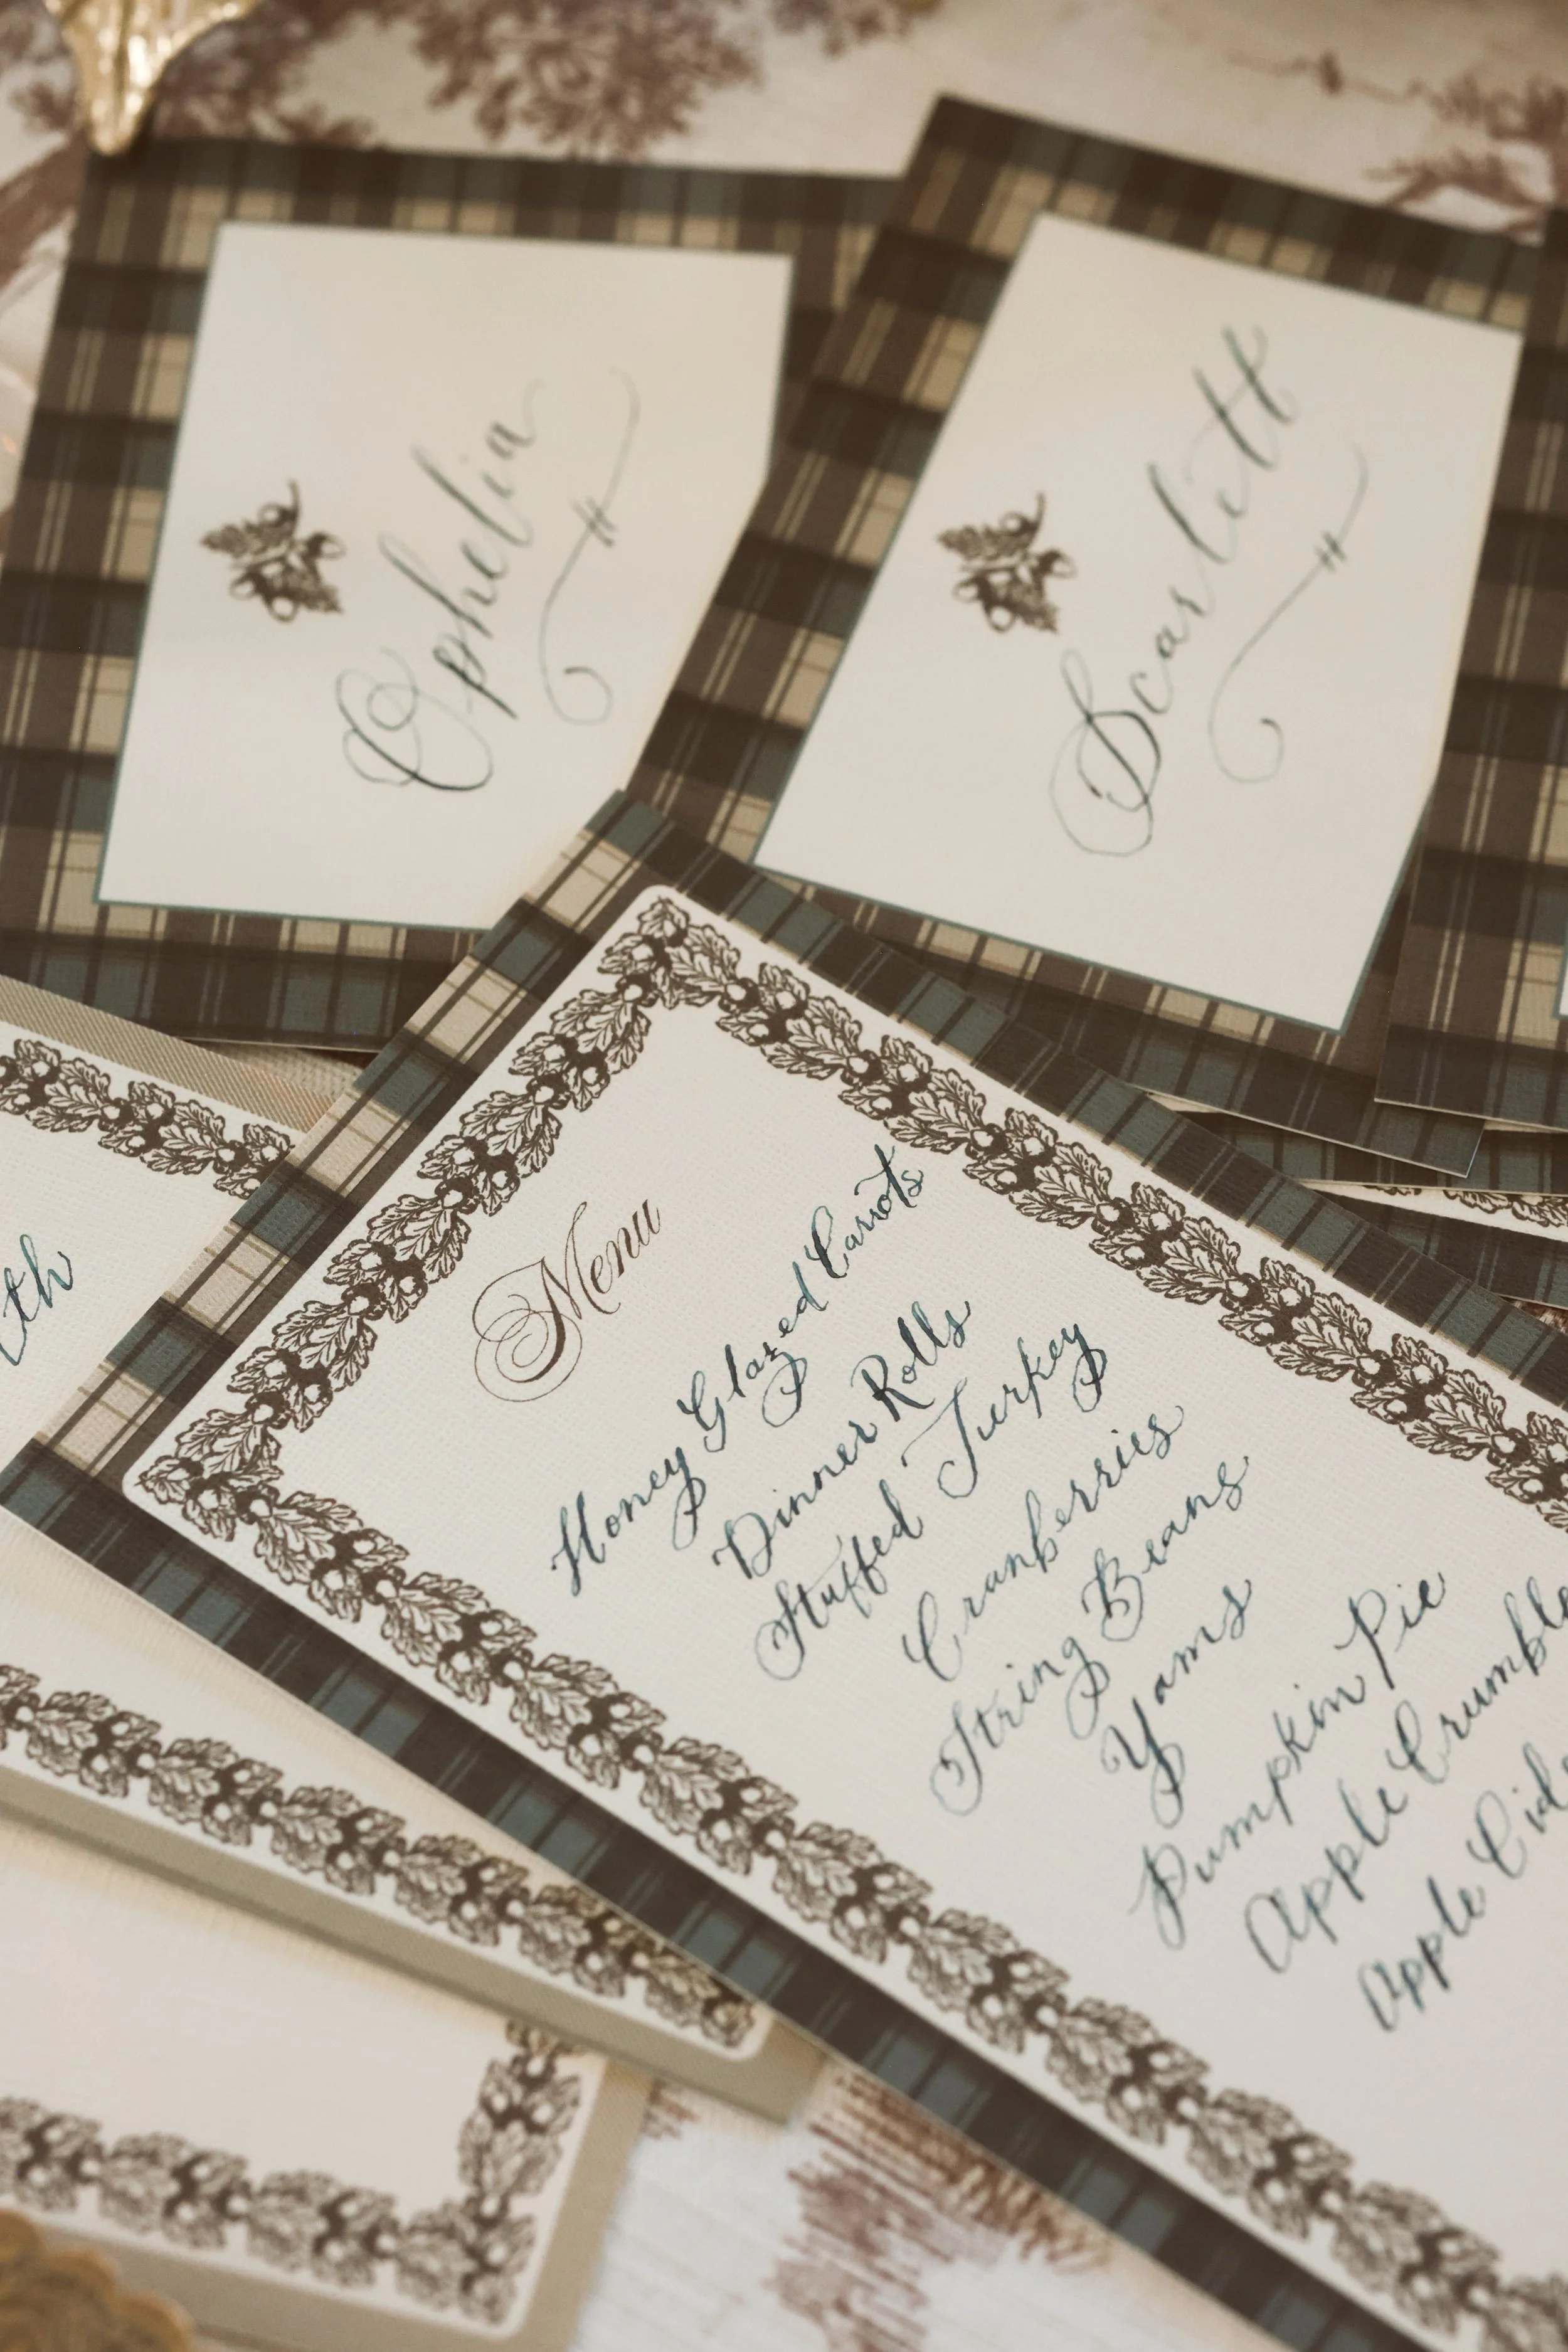 Ophelia
Scarlett
Menu
Honey Glazed Carrots
Dinner Rolls
Stuffed Turkey
Cranberries
String Beans
Yams
Pumpkin Pie
Apple Crumble
Apple